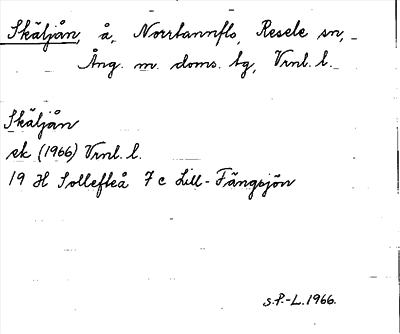 Skäljån, å, Norrtannflo, Resele sn,
Ång. m. doms. tg, Vrnl. l.
Skäljån
ek (1966) Vrnl. l.
19 H Sollefteå 7 c Lill-Fängsjön
s.P.-L. 1966.